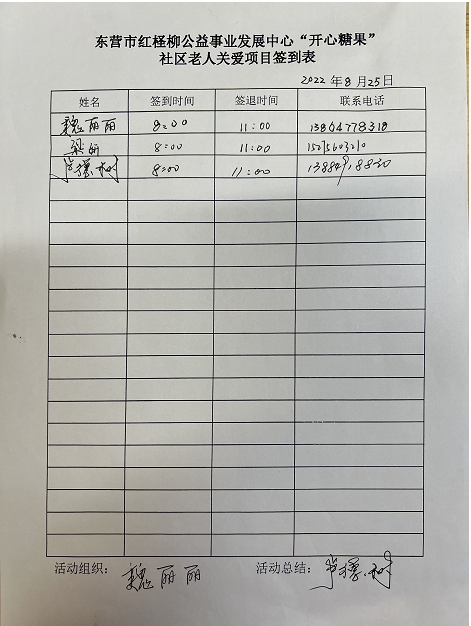 东营市红柽柳公益事业发展中心“开心糖果”
社区老人关爱项目签到表
2022 年 8 月 25 日
姓名 签到时间 签退时间 联系电话
魏丽丽 8:00 11:00 13864778318
梁妍 8:00 11:00
8:00 11:00
活动组织: 魏丽丽 活动总结: